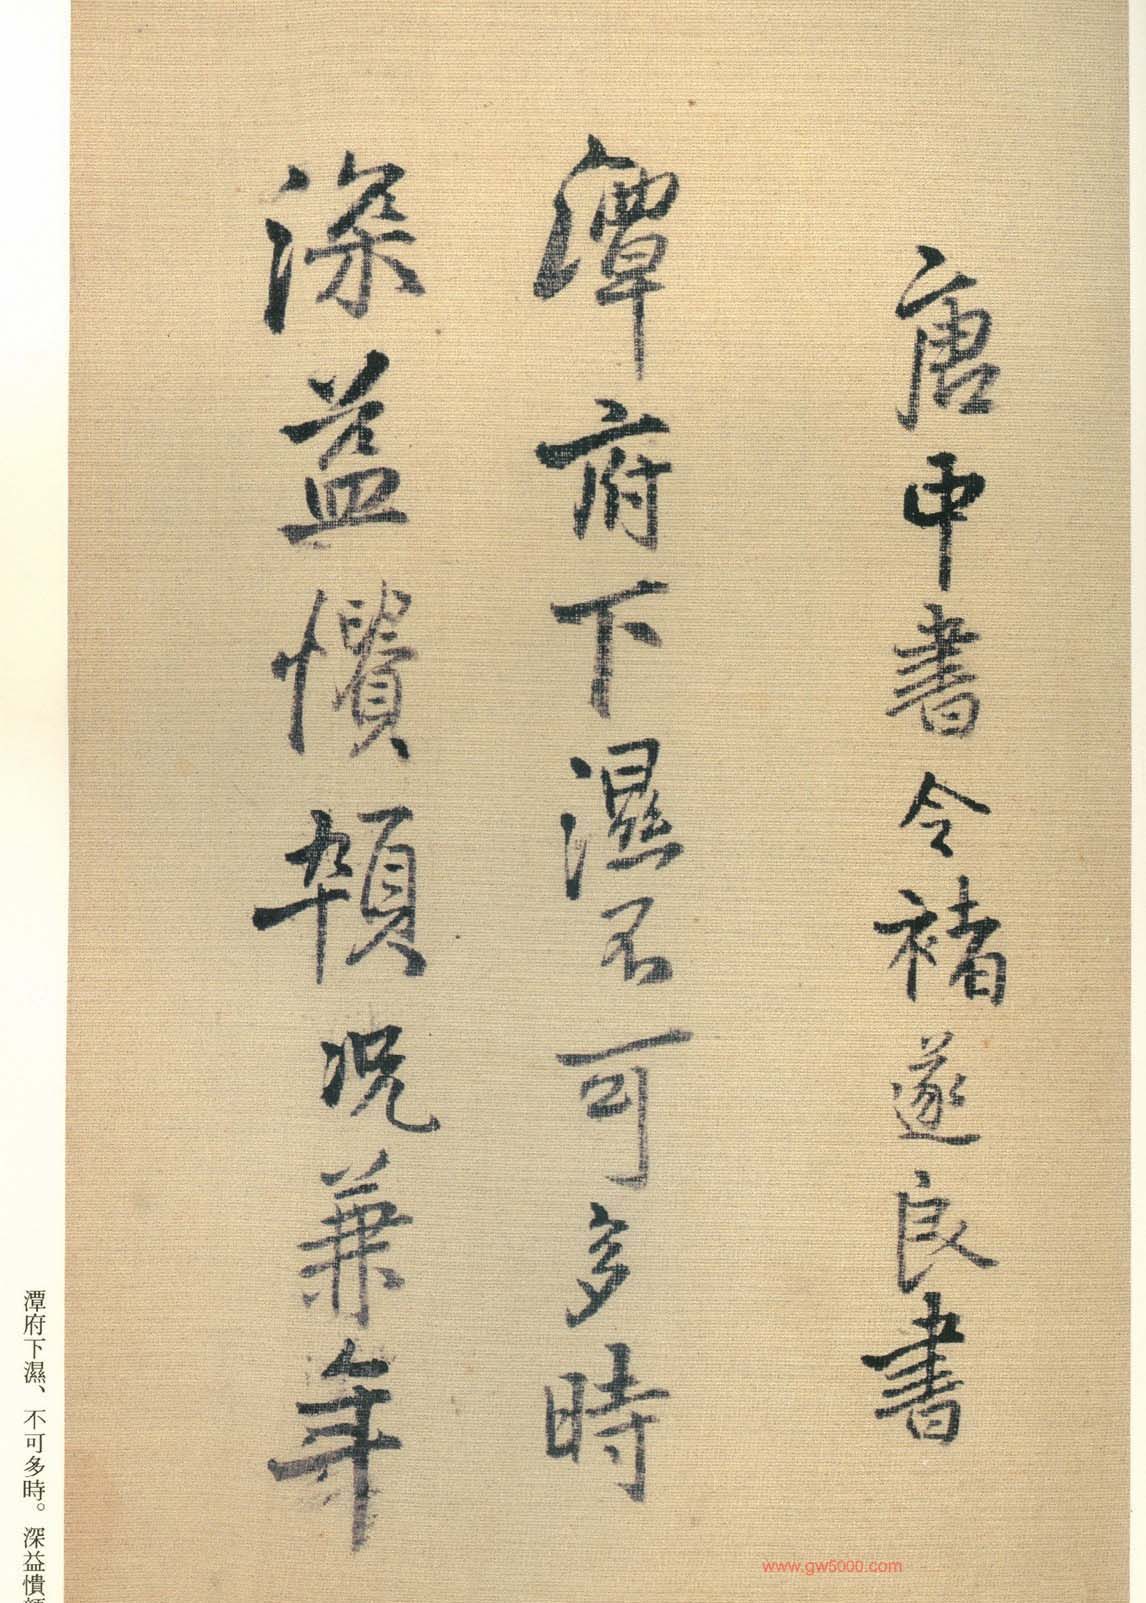 唐中書令褚遂良書
潭府下濕不可多時
深益憒顇況兼年
潭府下濕、不可多時。深益憒
www.gw5000.com